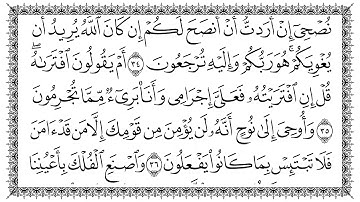 نُصْحِىٓ إِنْ أَرَدتُّ أَنْ أَنصَحَ لَكُمْ إِن كَانَ ٱللَّهُ يُرِيدُ أَن
يُغْوِيَكُمْ ۚ هُوَ رَبُّكُمْ وَإِلَيْهِ تُرْجَعُونَ ٣٤ أَمْ يَقُولُونَ ٱفْتَرَىٰهُ ۖ
قُلْ إِنِ ٱفْتَرَيْتُهُۥ فَعَلَىَّ إِجْرَامِى وَأَنَا۠ بَرِىٓءٌ مِّمَّا تُجْرِمُونَ
٣٥ وَأُوحِىَ إِلَىٰ نُوحٍ أَنَّهُۥ لَن يُؤْمِنَ مِن قَوْمِكَ إِلَّا مَن قَدْ ءَامَنَ
فَلَا تَبْتَئِسْ بِمَا كَانُوا۟ يَفْعَلُونَ ٣٦ وَٱصْنَعِ ٱلْفُلْكَ بِأَعْيُنِنَا